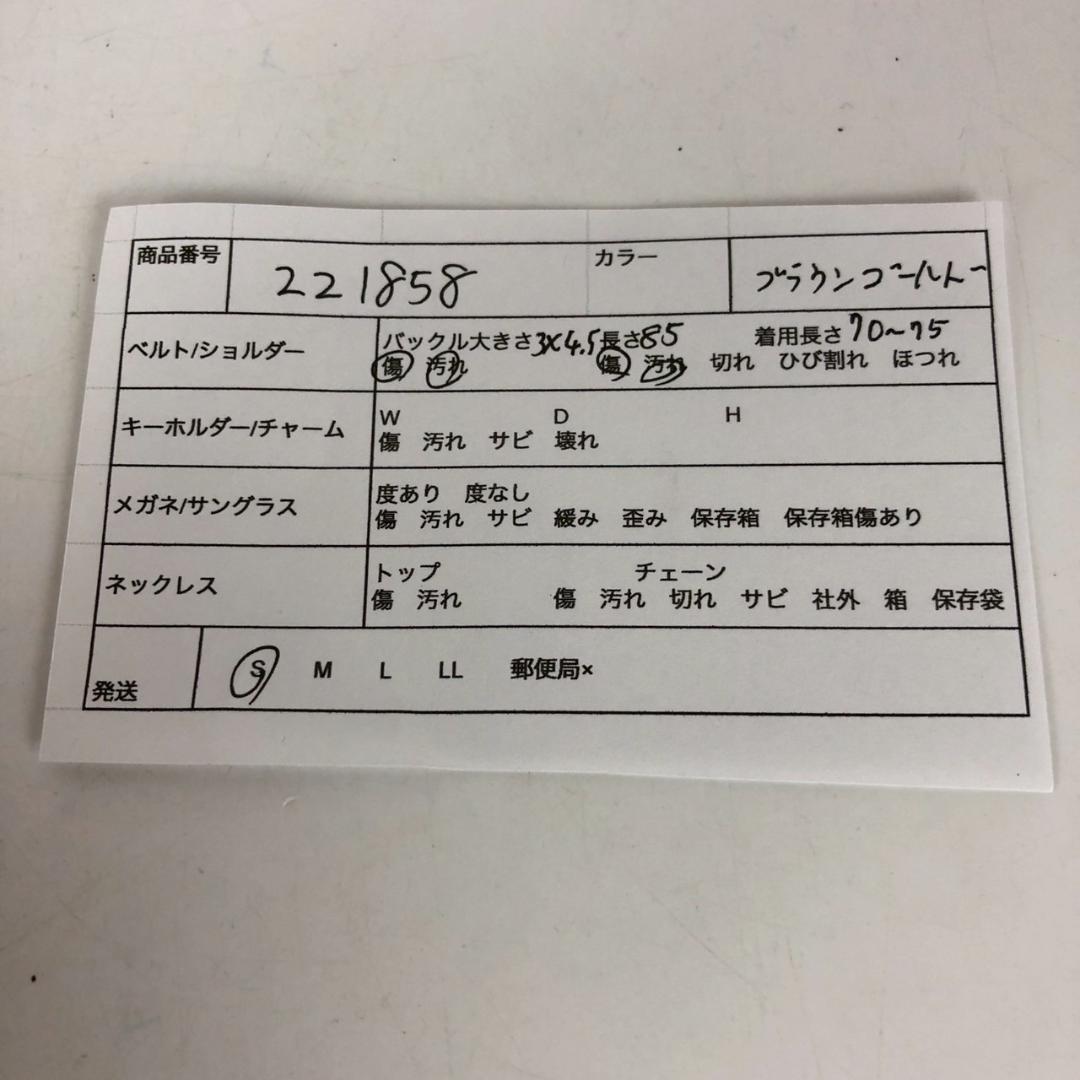 商品番号 221858 カラー ブラウンゴールド
ベルト/ショルダー バックル大きさ3×4.5長さ85 着用長さ70~75
傷 汚れ 傷 汚れ 切れ ひび割れ ほつれ
キーホルダー/チャーム W D H
傷 汚れ サビ 壊れ
メガネ/サングラス 度あり 度なし
傷 汚れ サビ 緩み 歪み 保存箱 保存箱傷あり
ネックレス トップ チェーン
傷 汚れ 傷 汚れ 切れ サビ 社外 箱 保存袋
発送 S M L LL 郵便局×